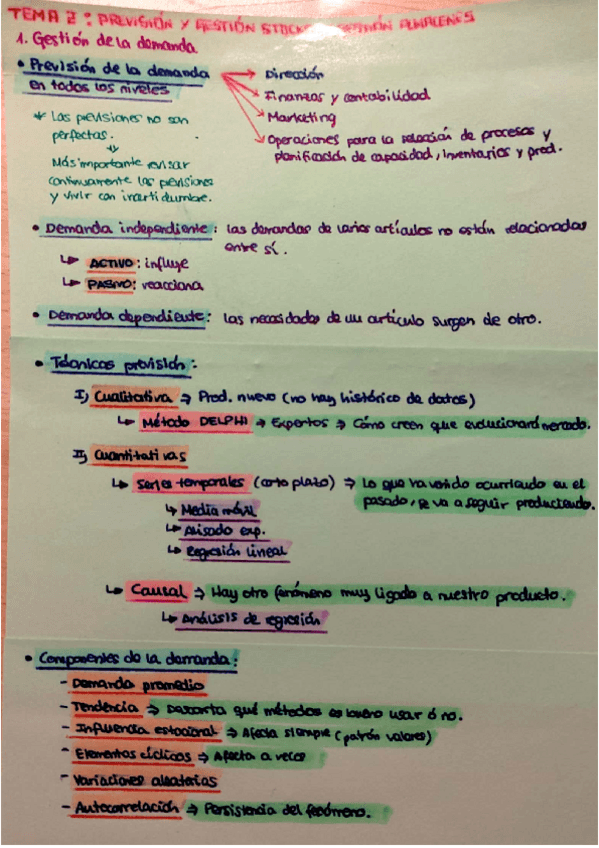 TEMA 2: PREVISIÓN Y GESTIÓN STOCKS ALMACENES
1. Gestión de la demanda
• Previsión de la demanda en todos los niveles
→ Dirección
→ Finanzas y contabilidad
→ Marketing
→ Operaciones para la selección de procesos y
planificación de capacidad, inventarios y prod.
* Las previsiones no son
perfectas.
⇓
Más importante revisar
continuamente las previsiones
y vivir con incertidumbre.
• Demanda independiente: las demandas de varios artículos no están relacionadas
entre sí.
↳ ACTIVO: influye
↳ PASIVO: reacciona
• Demanda dependiente: las necesidades de un artículo surgen de otro.
• Técnicas previsión:
I) Cualitativa ⇒ Prod. nuevo (no hay histórico de datos)
↳ Método DELPHI ⇒ Expertos ⇒ Cómo creen que evolucionará mercado.
II) Cuantitativas
↳ Series temporales (corto plazo) ⇒ Lo que ha venido ocurriendo en el
pasado, se va a seguir produciendo.
↳ Media móvil
↳ Alisado exp.
↳ Regresión lineal
↳ Causal ⇒ Hay otro fenómeno muy ligado a nuestro producto.
↳ Análisis de regresión
• Componentes de la demanda:
- Demanda promedio
- Tendencia ⇒ Descarta qué métodos es bueno usar ó no.
- Influencia estacional ⇒ Afecta siempre (patrón valores)
- Elementos cíclicos ⇒ Afecta a veces
- Variaciones aleatorias
- Autocorrelación ⇒ Persistencia del fenómeno.